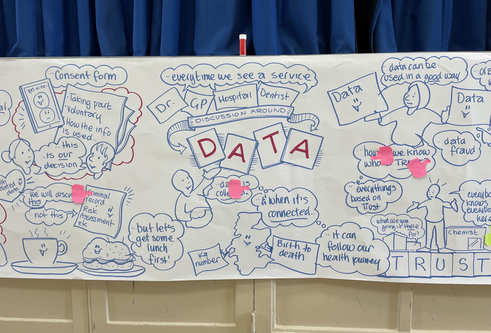 consent form
Taking part
Voluntary
How the info
is used.
this
is our
decision
we will discuss
not this
criminal
record
Risk
Assessment
etc
but let's
get some
lunch
first!
everytime we see a service
Dr.
GP
Hospital
Dentist
DISCUSSION AROUND
DATA
& when it's
connected.
Birth to
death
it can
follow our
health journey
number
data can be
used in a good way
Data
Data
data
fraud
how we know
who
everythings
based on
Trust
everybody
knows
everybody
here
what are you
going in there
for?
chemist
TRUST